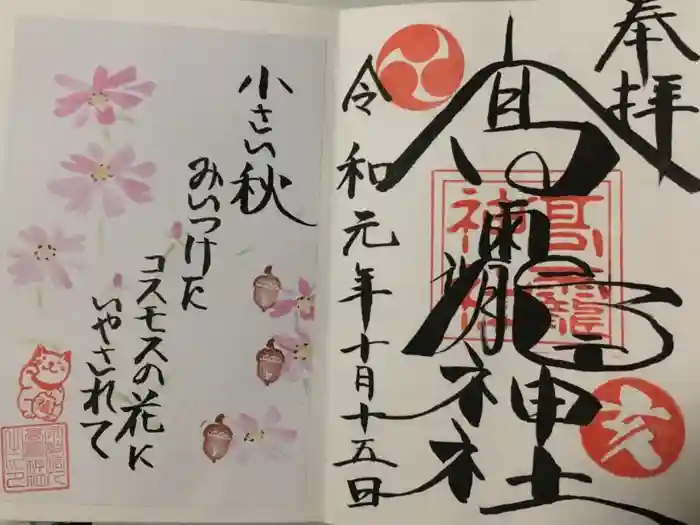 奉拝
高龗神社
高龗
神社
亥
令和元年十月十五日
小さい秋
みいつけた
コスモスの花に
いやされて